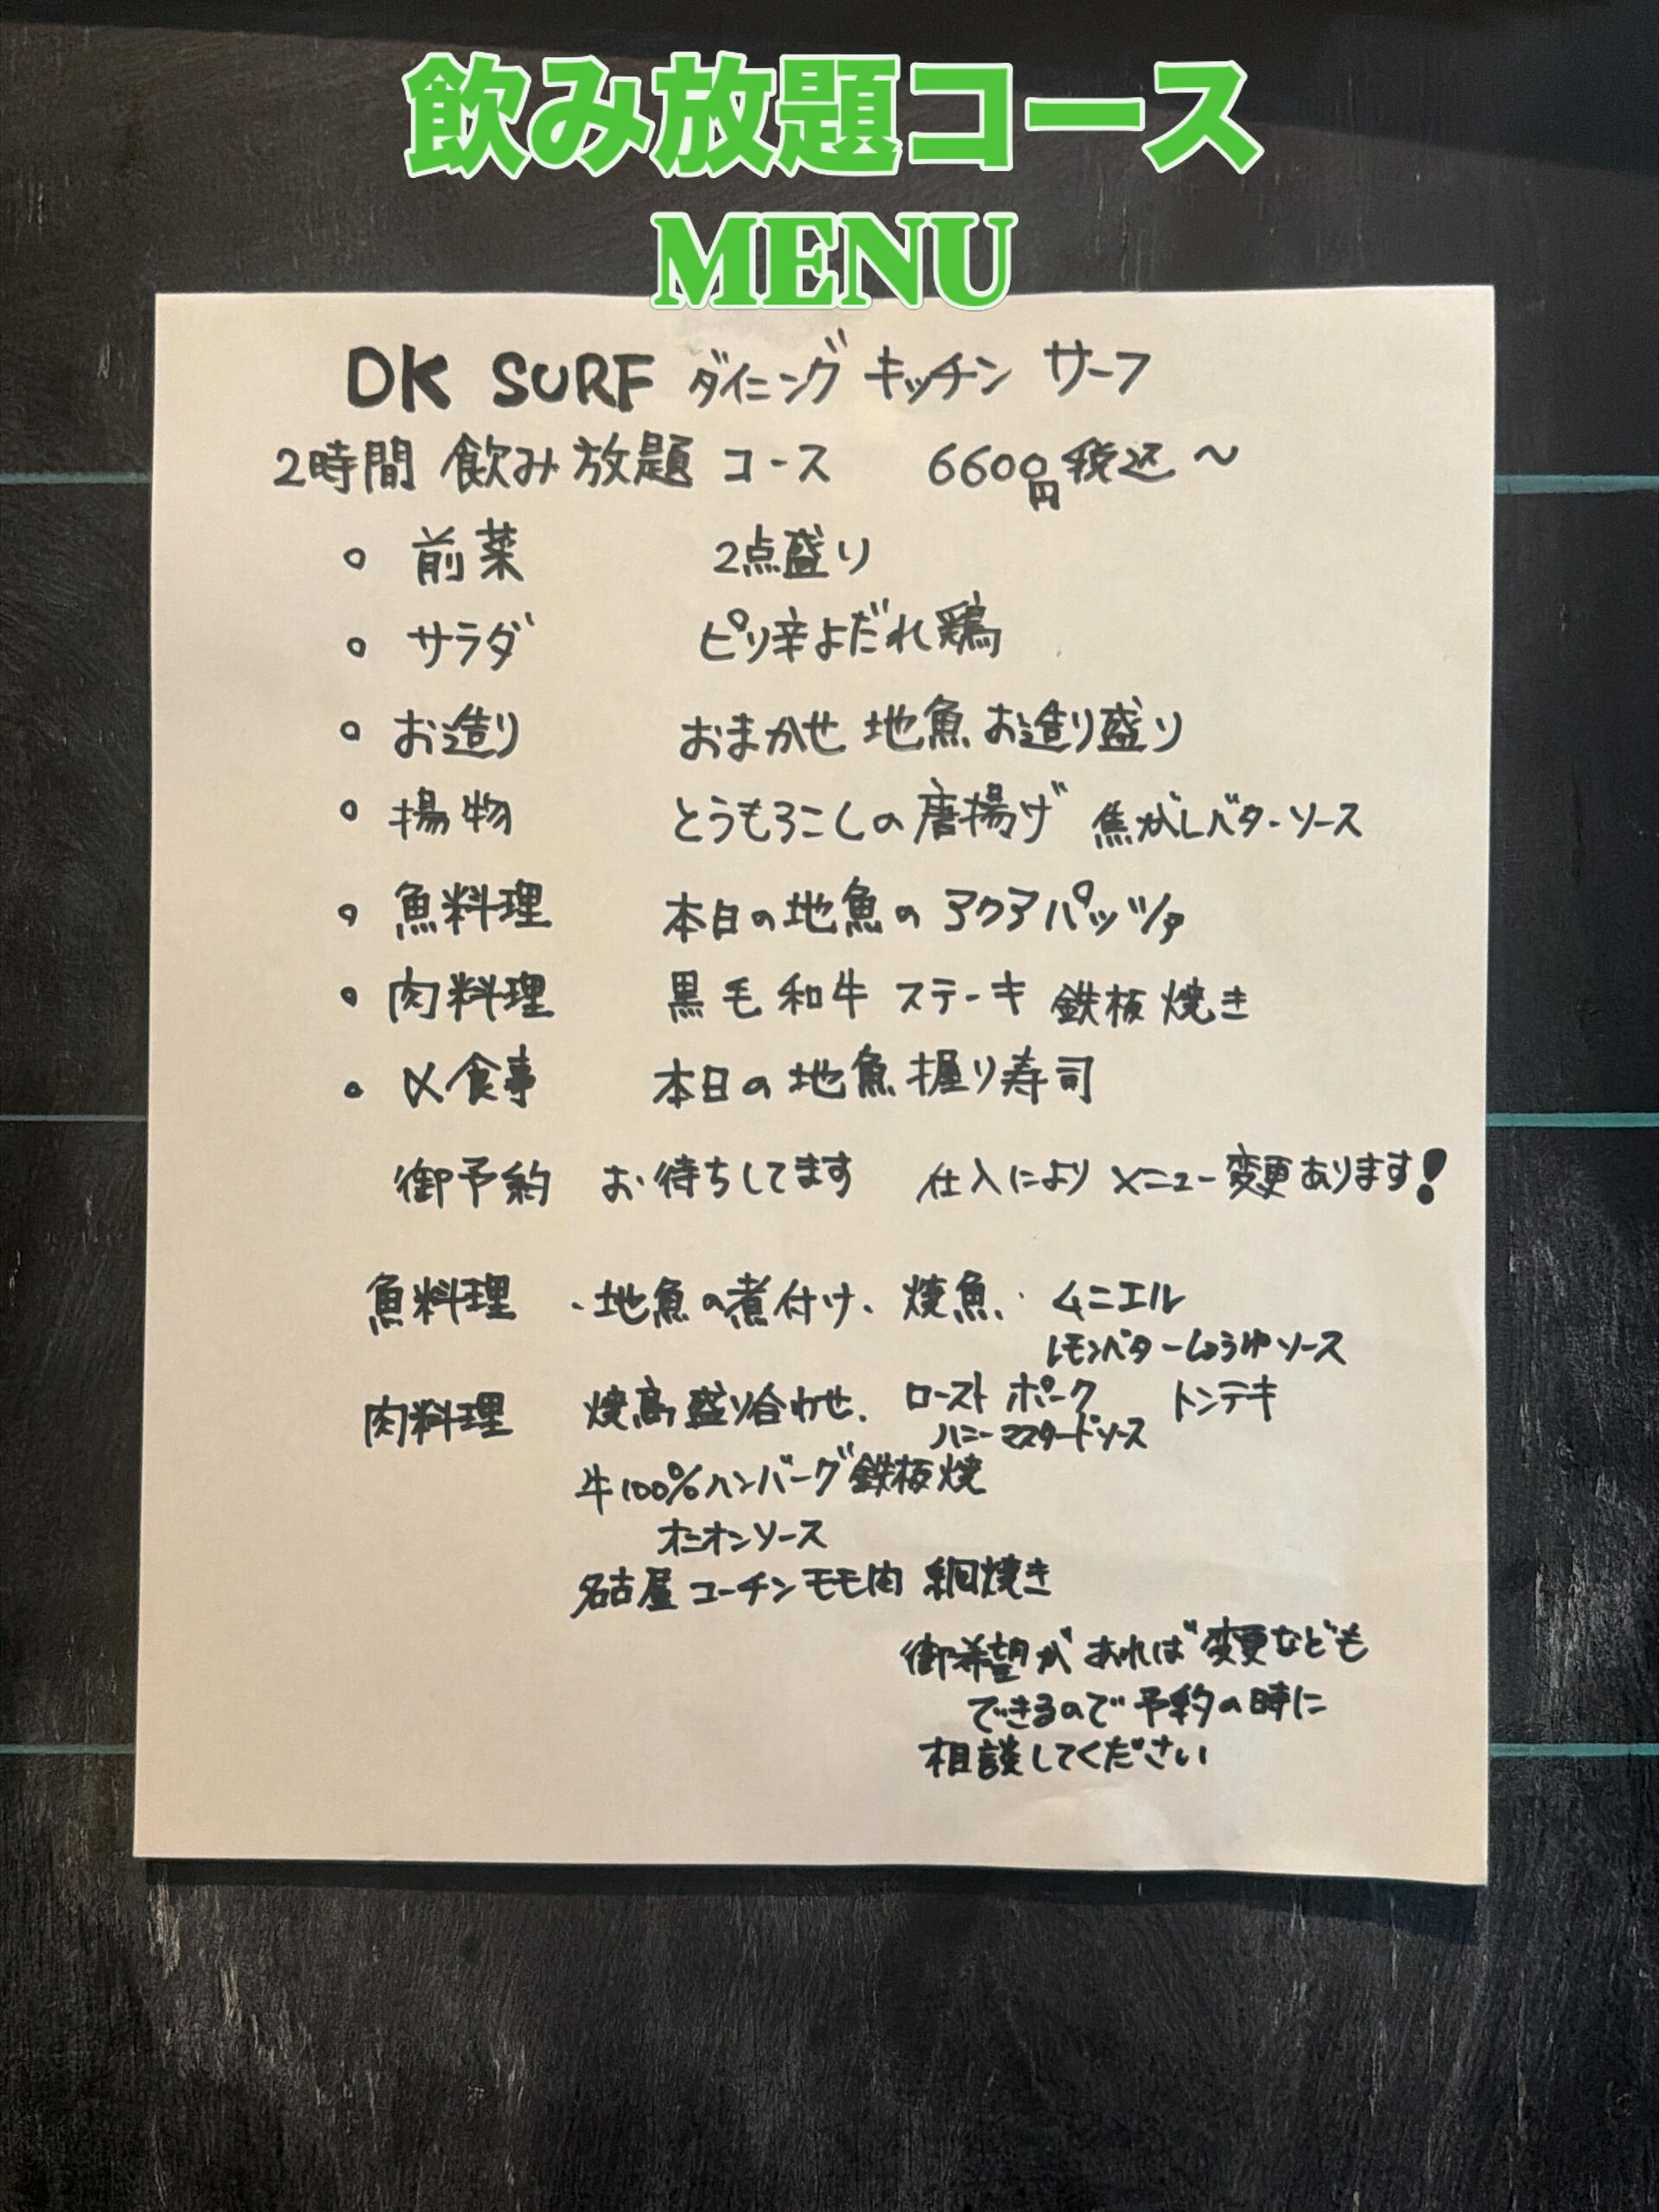 飲み放題コース
MENU
DK SURF ダイニング キッチン サーフ
2時間 飲み放題 コース 6600円税込～
。前菜 2点盛り
。サラダ ピリ辛よだれ鶏
。お造り おまかせ 地魚お造り盛り
。揚物 とうもろこしの唐揚げ 焦がしバターソース
。魚料理 本日の地魚のアクアパッツァ
。肉料理 黒毛和牛 ステーキ 鉄板焼き
。〆食事 本日の地魚握り寿司
御予約 お待ちしてます 仕入によりメニュー変更あります！
魚料理 、地魚の煮付け、焼魚、ムニエル
レモンバターしょうゆソース
肉料理 焼鳥盛り合わせ、ローストポーク トンテキ
ハニーマスタードソース
牛100%ハンバーグ鉄板焼
オニオンソース
名古屋コーチンモモ肉 網焼き
御希望があれば変更なども
できるので予約の時に
相談してください